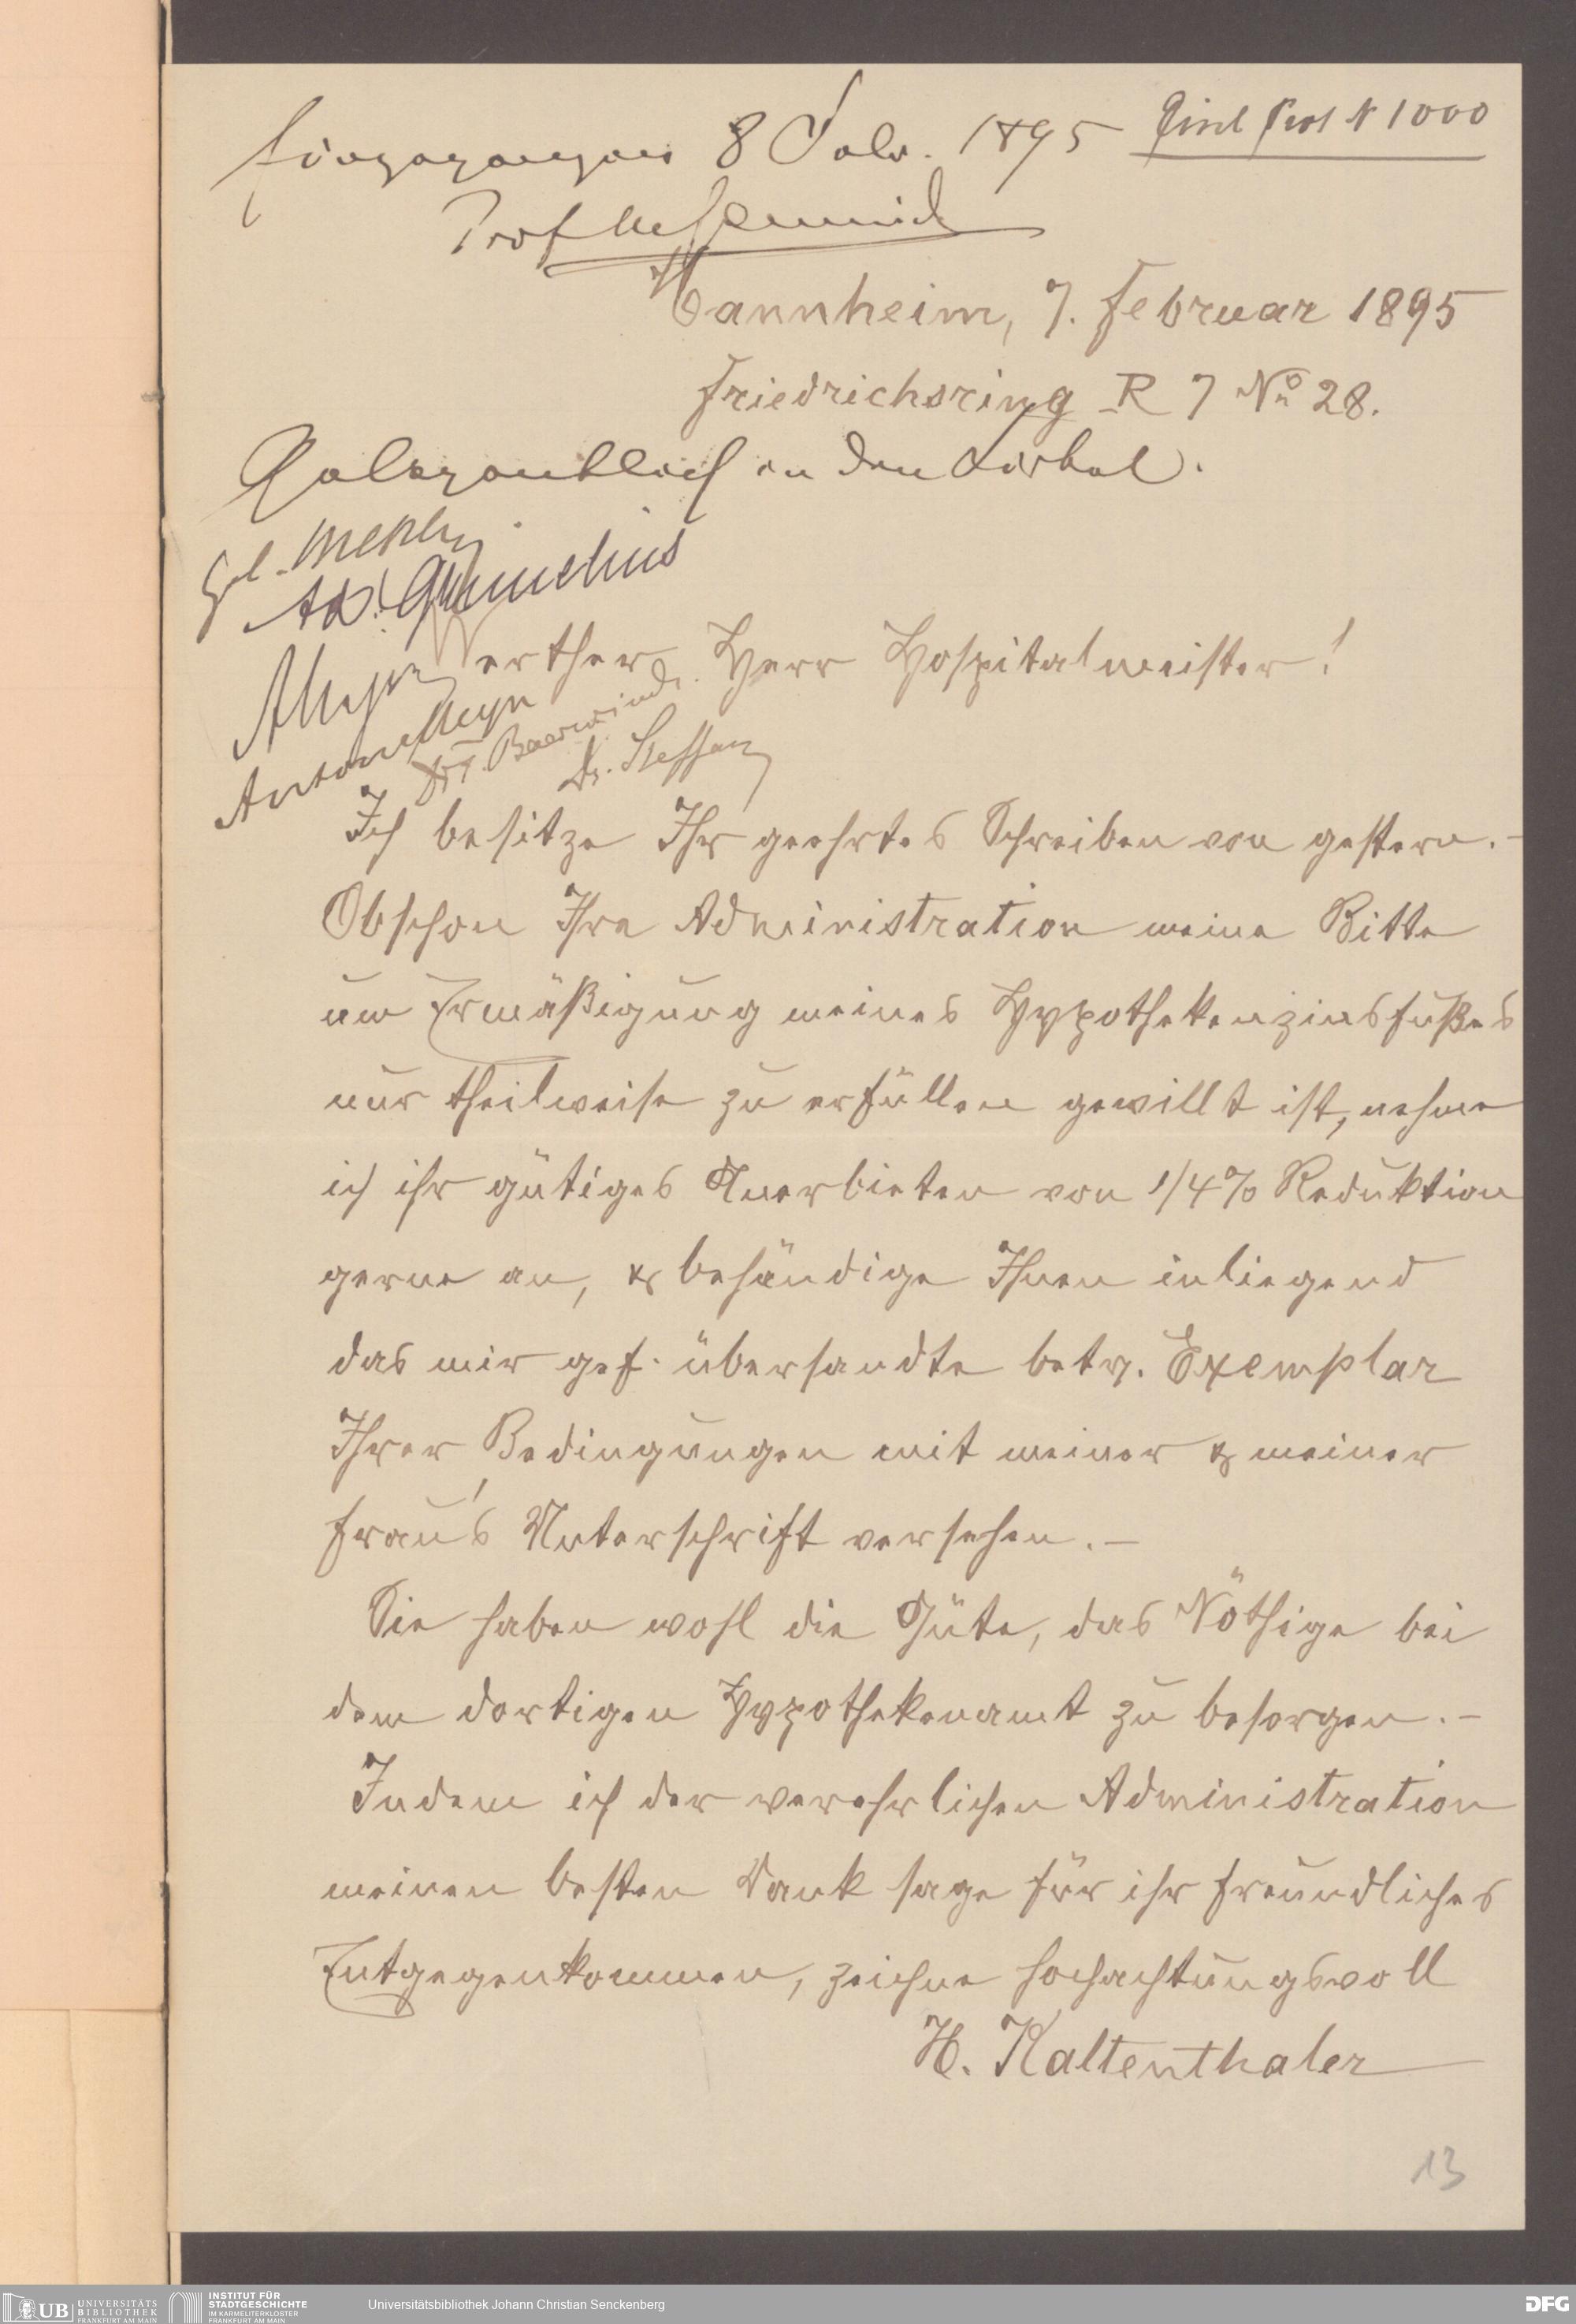 Eingegangen 8 Febr. 1895
Prot N 1000
Mannheim, 7. Februar 1895
Friedrichsring R 7 No 28.
in den Zirkel.
Ad. Gumelius
AMeyn
Anton Heyn
Dr. Baerwindt.
Dr. Steffan
Werther Herr Hospitalmeister!
Ich besitze Ihr geehrtes Schreiben von gestern. –
Obschon Ihre Administration meine Bitte
um Ermäßigung meines Hypothekenzinsfußes
nur theilweise zu erfüllen gewillt ist, nehme
ich ihr gütiges Anerbieten von 1/4 % Reduktion
gerne an, & behändige Ihnen inliegend
das mir gef. übersandte betr. Exemplar
Ihrer Bedingungen mit meiner & meiner
Frau's Unterschrift versehen. –
Sie haben wohl die Güte, das Nöthige bei
dem dortigen Hypothekenamt zu besorgen. –
Indem ich der verehrlichen Administration
meinen besten Dank sage für ihr freundliches
Entgegenkommen, zeichne hochachtungsvoll
H. Kaltenthaler
13
UB UNIVERSITÄTS
BIBLIOTHEK
FRANKFURT AM MAIN
INSTITUT FÜR
STADTGESCHICHTE
IM KARMELITERKLOSTER
FRANKFURT AM MAIN
Universitätsbibliothek Johann Christian Senckenberg
DFG